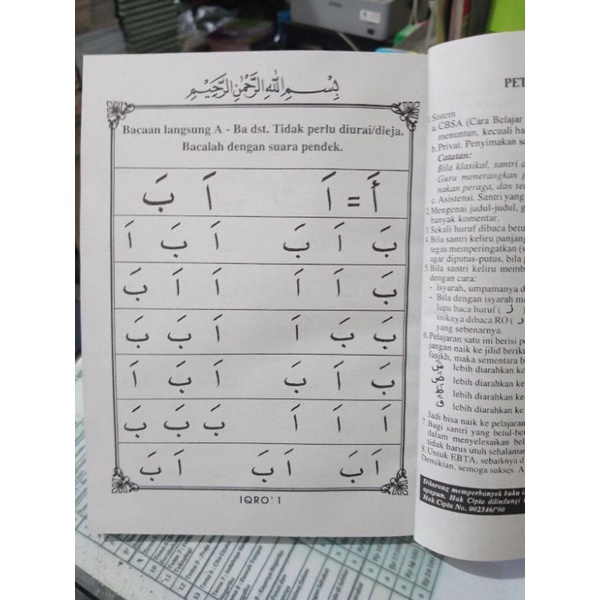 بِسْمِ اللهِ الرَّحْمٰنِ الرَّحِيْمِ
Bacaan langsung A - Ba dst. Tidak perlu diurai/dieja.
Bacalah dengan suara pendek.
أَ = اَ اَ بَ
بَ اَ بَ اَ بَ اَ
بَ اَ اَ اَ اَ بَ
بَ بَ اَ اَ بَ بَ
بَ اَ بَ اَ بَ اَ
اَ اَ اَ بَ بَ بَ
اَ بَ اَ بَ اَ بَ
IQRO' 1
PET
1. Sistem
a. CBSA (Cara Belajar
menuntun, kecuali ha
b. Privat. Penyimakan se
Catatan:
Bila klasikal, santri d
Guru menerangkan p
nakan peraga, dan se
c. Asistensi. Santri yang
2. Mengenai judul-judul, g
banyak komentar.
3. Sekali huruf dibaca betu
4. Bila santri keliru panjang
tegas memperingatkan (
agar diputus-putus, bila
5. Bila santri keliru memb
dengan cara:
- Isyarah, umpamanya d
- Bila dengan isyarah ma
lupa baca huruf ( ز
titiknya dibaca RO ( ر
yang sebenarnya.
6. Pelajaran satu ini berisi pe
jangan naik ke jilid berik
fasikh, maka sementara b
lebih diarahkan ke
lebih diarahkan ke
lebih diarahkan ke
lebih diarahkan ke
Jadi bisa naik ke pelajaran
7. Bagi santri yang betul-bet
dalam menyelesaikan bel
tidak harus utuh sehalaman
8. Untuk EBTA, sebaiknya d
Demikian, semoga sukses. A
Dilarang memperbanyak buku i
apapun. Hak Cipta dilindungi
Hak Cipta No. 002246/'90